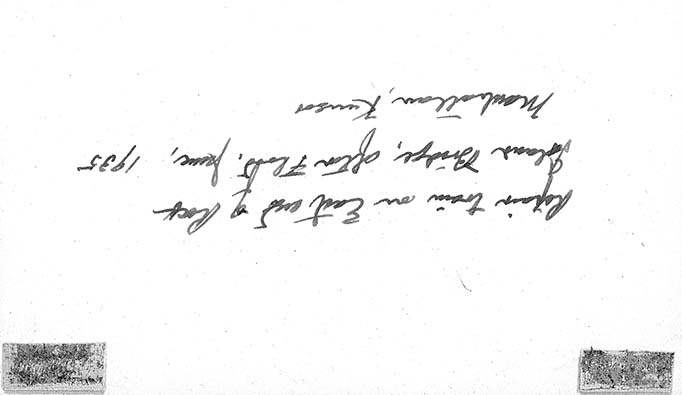 Repair train on East end of Rock
Island Bridge, after Flood, June, 1935
Manhattan, Kansas